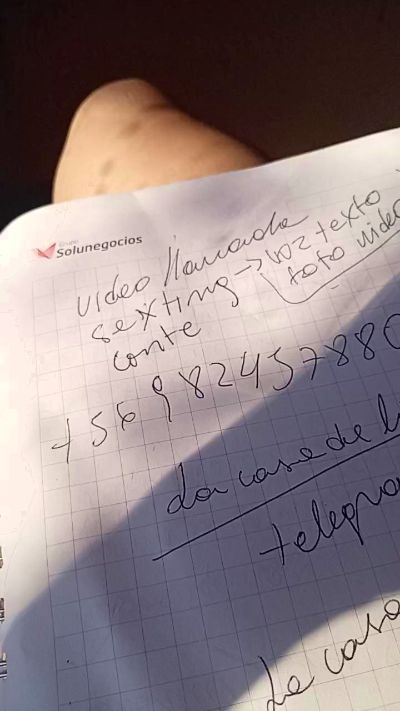 Grupo
Solunegocios
video llamada
sexting → voz texto
foto video
conte
+56982457880
La casa de
telegra
La casa